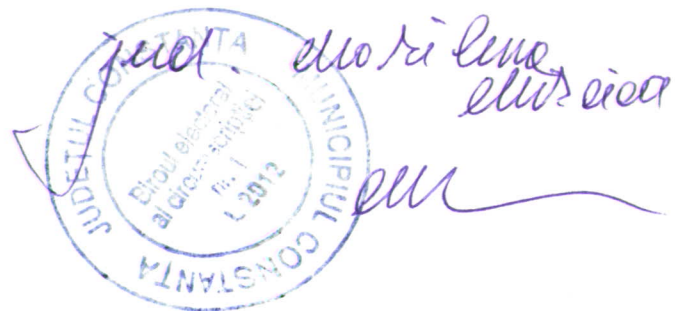 jud. Marilena
JUDEȚUL CONSTANȚA
MUNICIPIUL CONSTANȚA
Biroul electoral
al circumscripției
nr. 1
L 2012